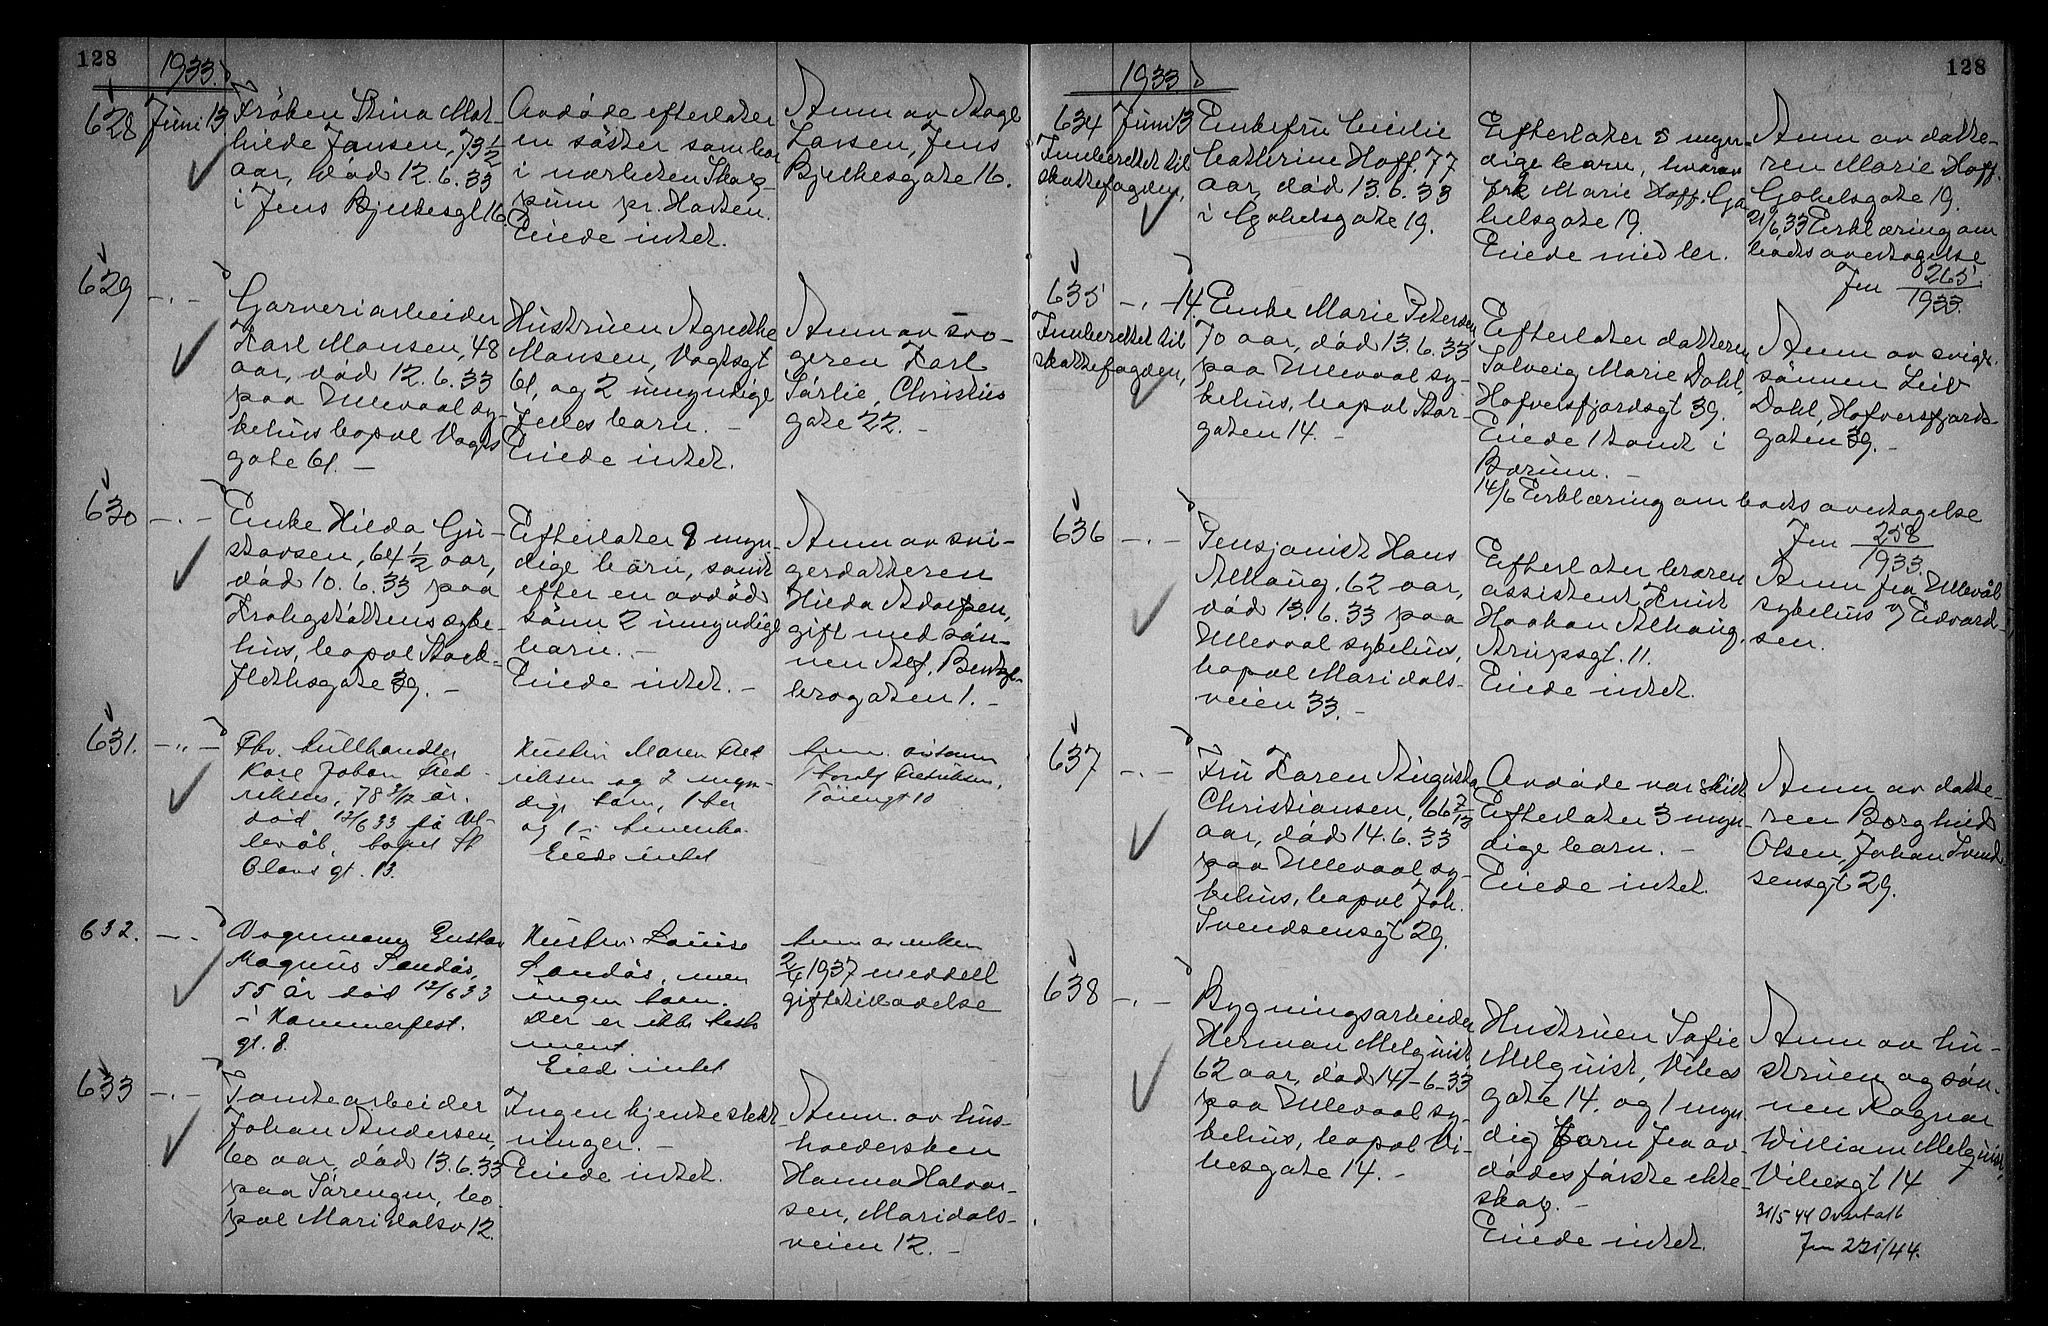 128
1933.
628
Juni 13.
Fröken Stina Mat-
hilde Jansen, 73 1/2
aar, död 12.6.33
i Jens Bjelkesgt 16.
Avdöde efterlater
en söster som bor
i nærheten Skop-
pum pr. Horten.
Eiede intet.
Anm av Aage
Larsen, Jens
Bjelkesgate 16.
629
-.-
Garveriarbeider
Karl Mansen, 48
aar, död 12.6.33
paa Ullevaal sy-
kehus bopæl Vogts
gate 61. -
Hustruen Agnethe
Mansen, Vogtsgt
61, og 2 umyndige
felles barn. -
Eiede intet.
Anm av svo-
geren Karl
Sörlie, Christies
gate 22. -
630
-.-
Enke Hilda Gu-
stavsen, 64 1/2 aar,
död 10.6.33 paa
Krohgstöttens syke-
hus, bopæl Stock-
flethsgate 39. -
Efterlater 9 myn-
dige barn, samt
efter en avdöd
sönn 2 umyndige
barn. -
Eiede intet. -
Anm av svi-
gerdatteren
Hilda Adolfsen,
gift med sön-
nen Alf, Bentse-
brogaten 1. -
631.
-"-
Fhv. kullhandler
Karl Johan Fred-
riksen, 78 3/12 år.
död 12/6 33 på Ul-
levål, bopæl St
Olavs gt. 13.
Hustru Maren Fred
riksen og 2 myn-
dige barn, 1 her
og 1 i Amerika.
Eiede intet
Anm. av sønn
Thorolf Fredriksen,
Töiengt 10
632.
-.-
Vognmann Gustav
Magnus Sandås,
55 år død 12/6 33
i Hammerfest.
gt. 8.
Hustru Louise
Sandås, men
ingen barn.
Der er ikke testa
ment.
Eied intet
Anm av enken
2/4 1937 meddelt
giftetilladelse
633
-.-
Tomtearbeider
Johan Andersen,
60 aar, död 13.6.33
paa Sörengen, bo
pæl Maridalsv 12.
Ingen kjente slekt
ninger. -
Eiede intet.
Anm. av hus-
holdersken
Hanna Halvor-
sen, Maridals-
veien 12. -
1933.
128
634
Juni 13
Innberettet til
skattefogden,
Enkefru Cecilie
Cathrine Hoff. 77
aar, död 13.6.33
i Gabelsgate 19.
Efterlater 5 myn-
dige barn, hvorav
frk Marie Hoff. Ga
belsgate 19.
Eiede midler.
Anm av datte-
ren Marie Hoff.
Gabelsgate 19.
21/6 33 Erklæring om
boets overtagelse
Jnr 265
1933.
635
-.-14.
Innberettet til
skattefogden,
Enke Marie Petersen
70 aar, död 13.6.33
paa Ullevaal sy-
kehus, bopæl Stor-
gaten 14. -
Efterlater datteren
Solveig Marie Dahl,
Hafversfjordsgt 39.
Eiede 1 tomt i
Bærum. -
14/6 Erklæring om boets overtagelse
Jnr 258
1933.
Anm av sviger-
sönnen Leiv
Dahl, Hafversfjords-
gaten 39. -
636
-.-
Pensjonist Hans
Alhaug, 62 aar,
död 13.6.33 paa
Ullevaal sykehus,
bopæl Maridals-
veien 33. -
Efterlater broren
assistent Knut
Haakon Alhaug,
Arupsgt. 11.
Eiede intet.
Anm fra Ullevål
sykehus v/ Edvard-
sen.
637
-.-
Fru Karen Augusta
Christiansen, 66 7/12
aar, död 14.6.33
paa Ullevaal sy-
kehus, bopæl Joh.
Svendsensgt 29.
Avdöde var skilt
Efterlater 3 myn-
dige barn. -
Eiede intet.
Anm av datte-
ren Borghild
Olsen, Johan Svend
sensgt 29.
638
-.-
Bygningsarbeider
Herman Melquist
62 aar, död 14-6-33
paa Ullevaal sy-
kehus, bopæl Vi-
besgate 14. -
Hustruen Sofie
Melquist, Vibes
gate 14. og 1 myn
dig barn fra av-
dödes förste ekte-
skap. -
Eiede intet.
Anm av hu-
struen og sön-
nen Ragnar
William Melquist,
Vibesgt 14
31/5 44 Overtatt
Jnr 221/44.